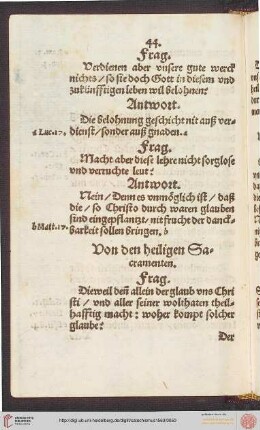 44.
Frag.
Verdienen aber vnsere gute werck
nichts / so sie doch Gott in diesem vnd
zukünfftigen leben wil belohnen?
Antwort.
Die belohnung geschicht nit auß ver-
a Luc. 17. dienst / sonder auß gnaden. a
Frag.
Macht aber diese lehre nicht sorglose
vnd verruchte leut?
Antwort.
Nein / Denn es vnmöglich ist / daß
die / so Christo durch waren glauben
sind eingepflantzt / nit frucht der danck-
b Matt. 17. barkeit sollen bringen. b
Von den heiligen Sa-
cramenten.
Frag.
Dieweil deñ allein der glaub vns Chri
sti / vnd aller seiner wolthaten theil-
hafftig macht : woher kompt solcher
glaube?
Der